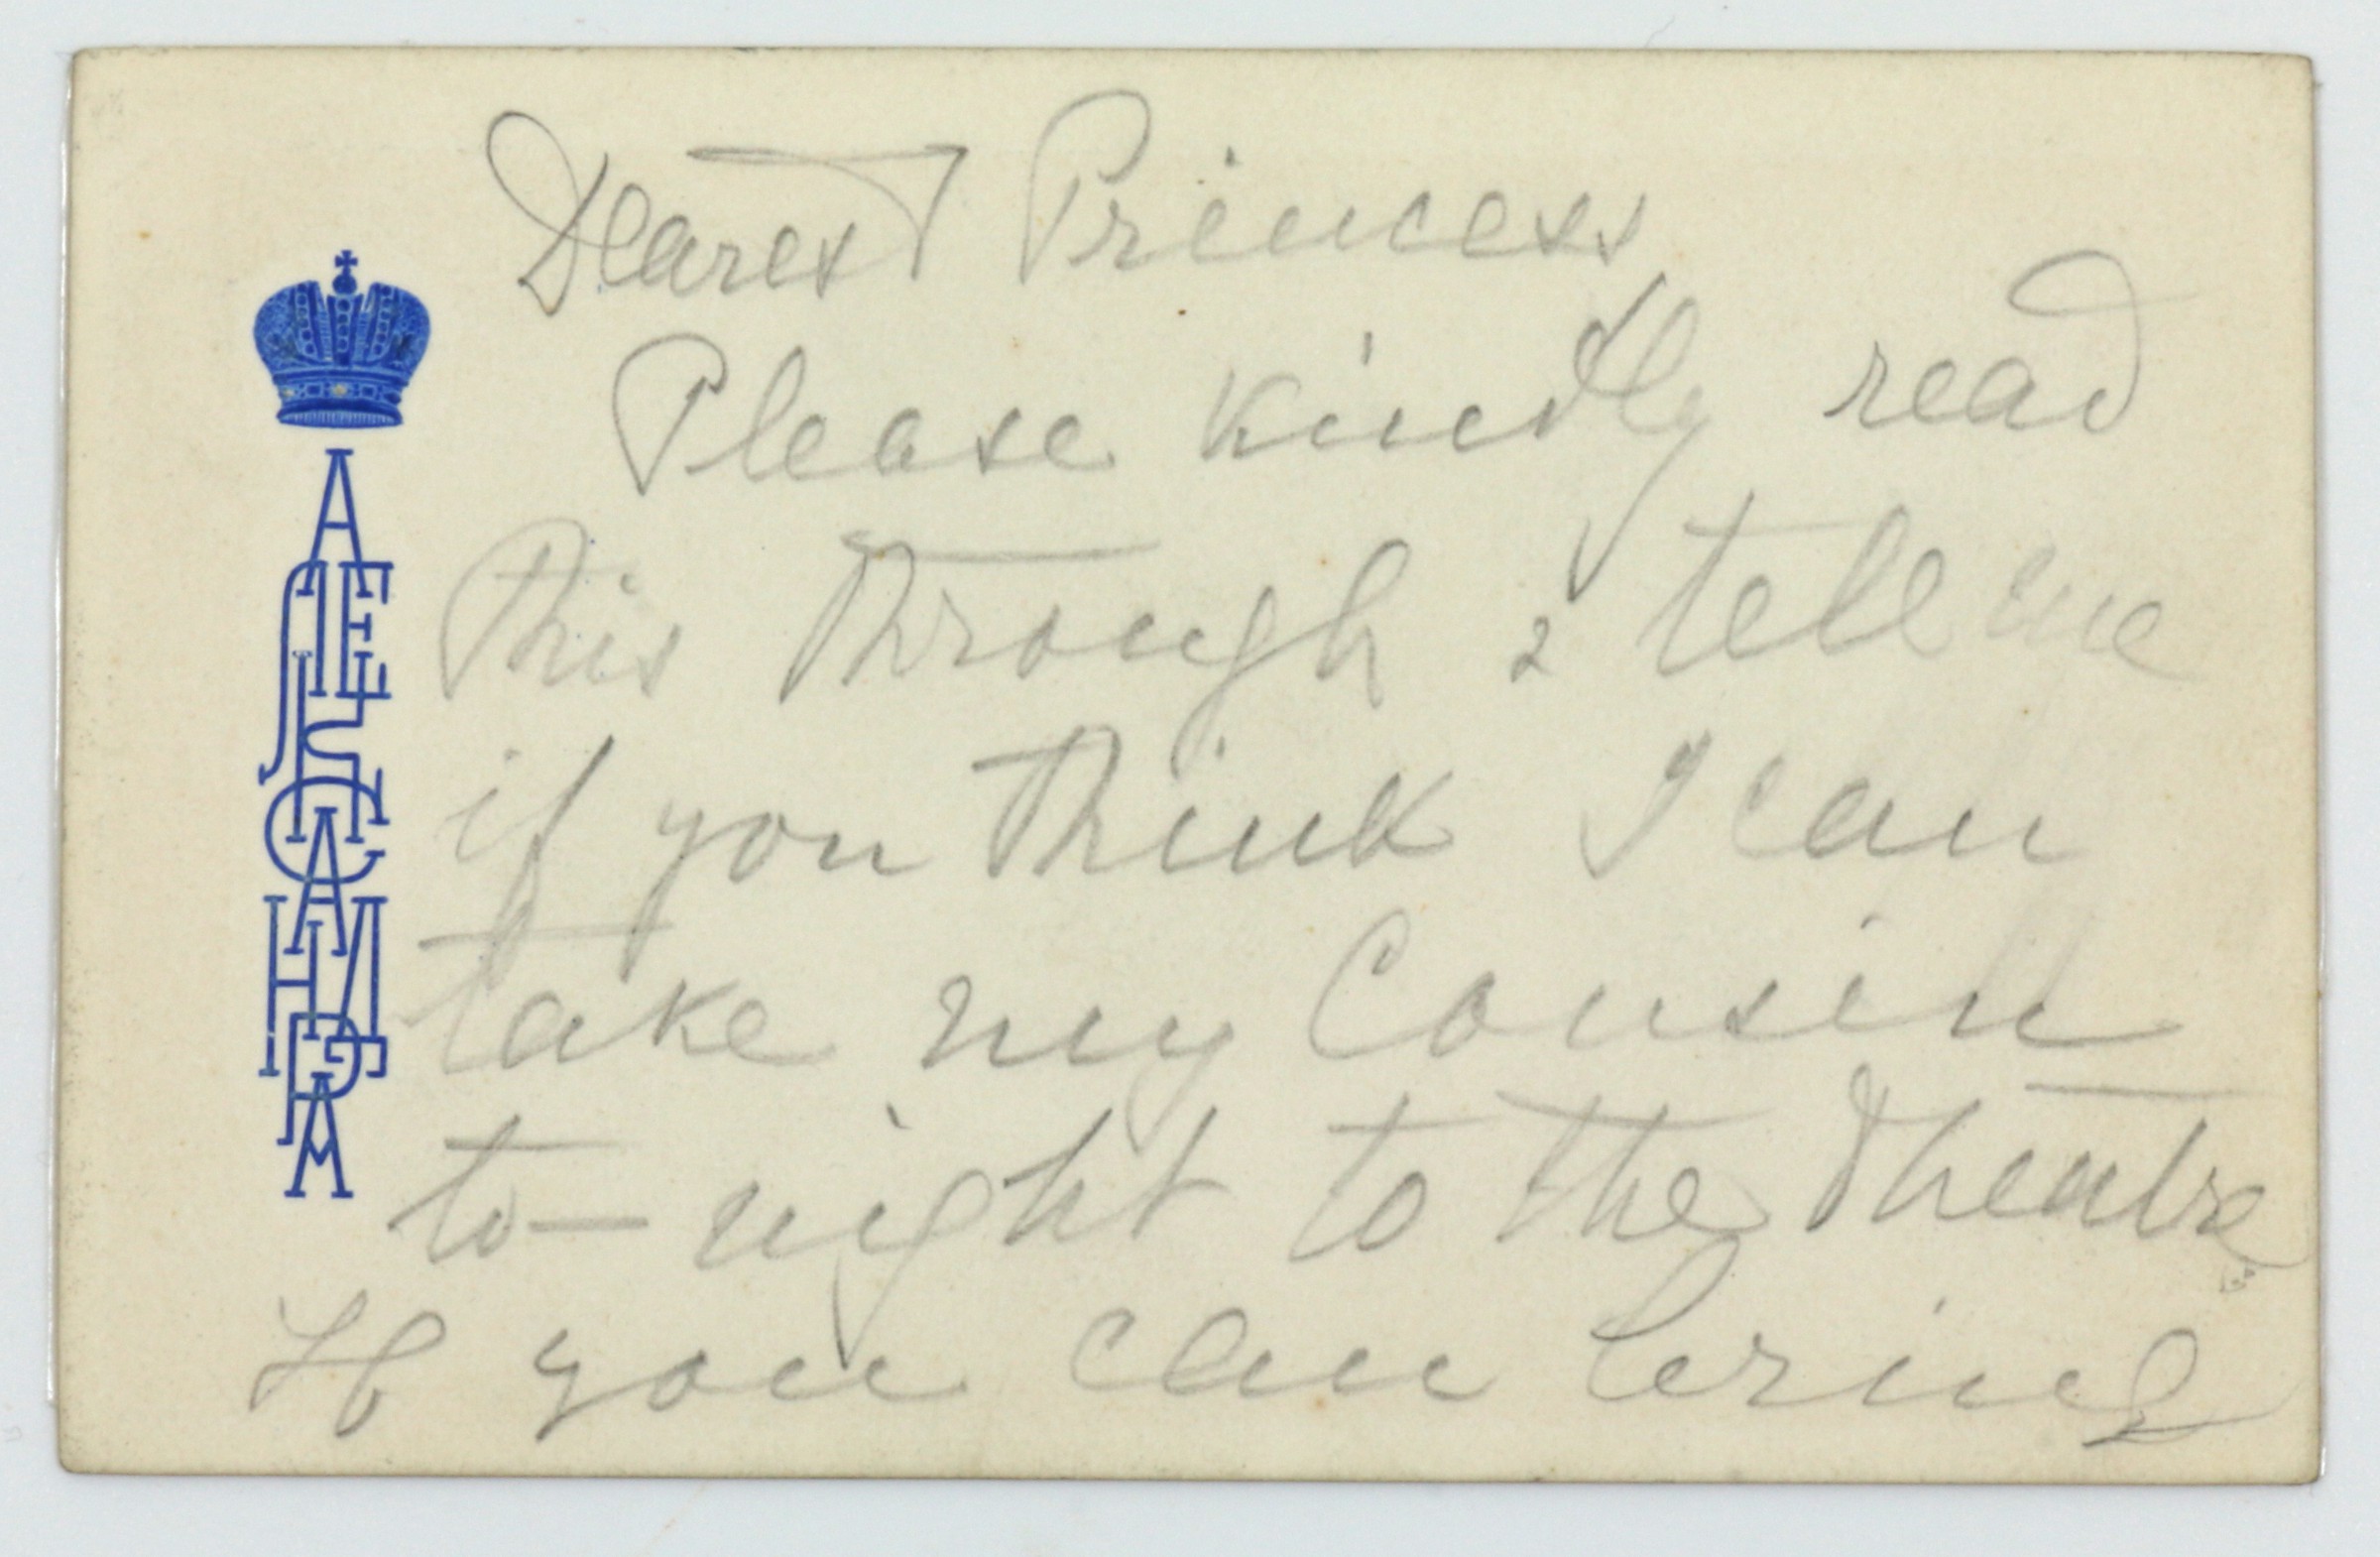 АЛЕКСАНДРА
Dearest Princess
Please kindly read
this through & tell me
if you think I can
take my Cousin
to-night to the Theatre
If you can bring